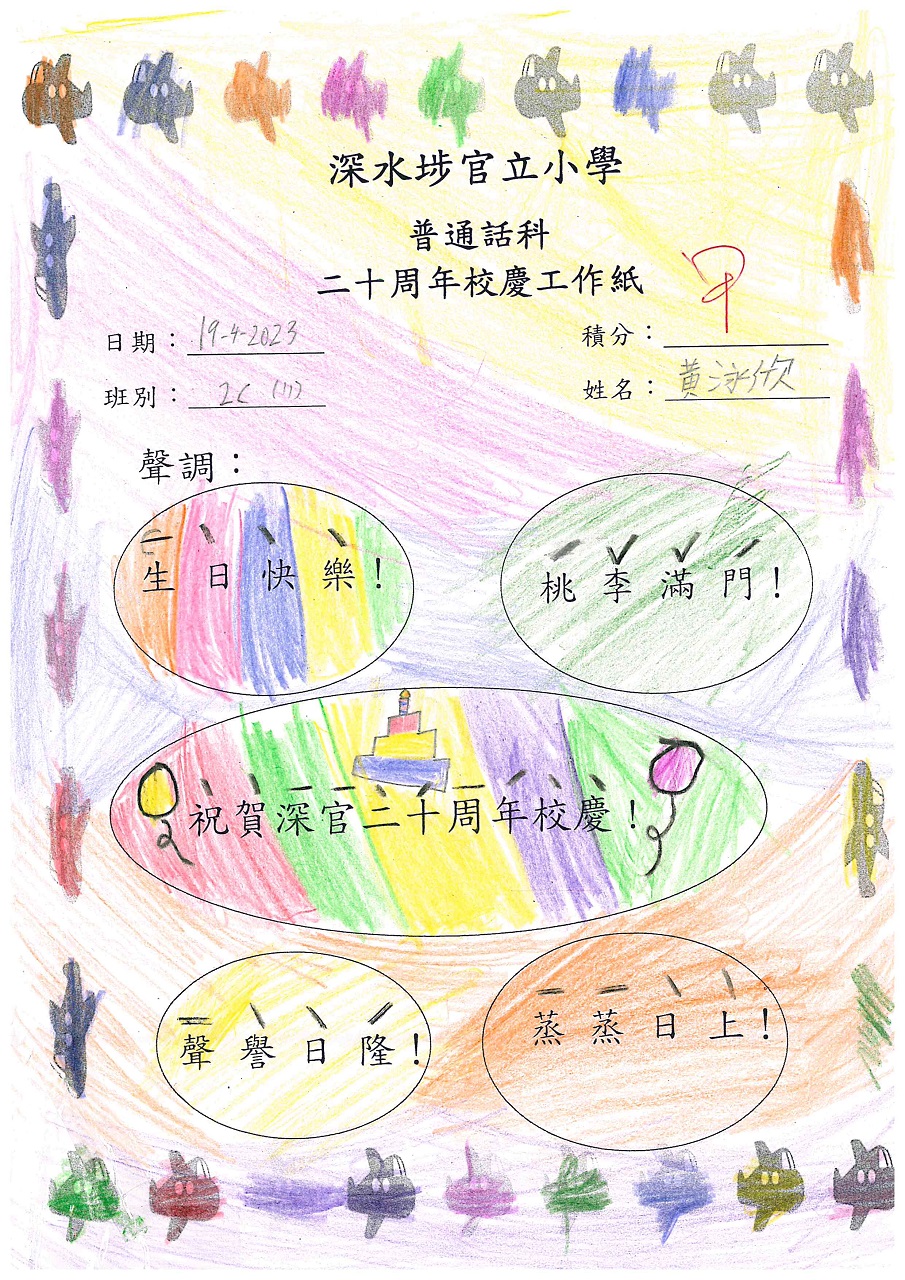 深水埗官立小學
普通話科
二十周年校慶工作紙
日期：19-4-2023
積分：甲
班別：2C (11)
姓名：黃泳欣
聲調：
生日快樂！
桃李滿門！
祝賀深官二十周年校慶！
聲譽日隆！
蒸蒸日上！